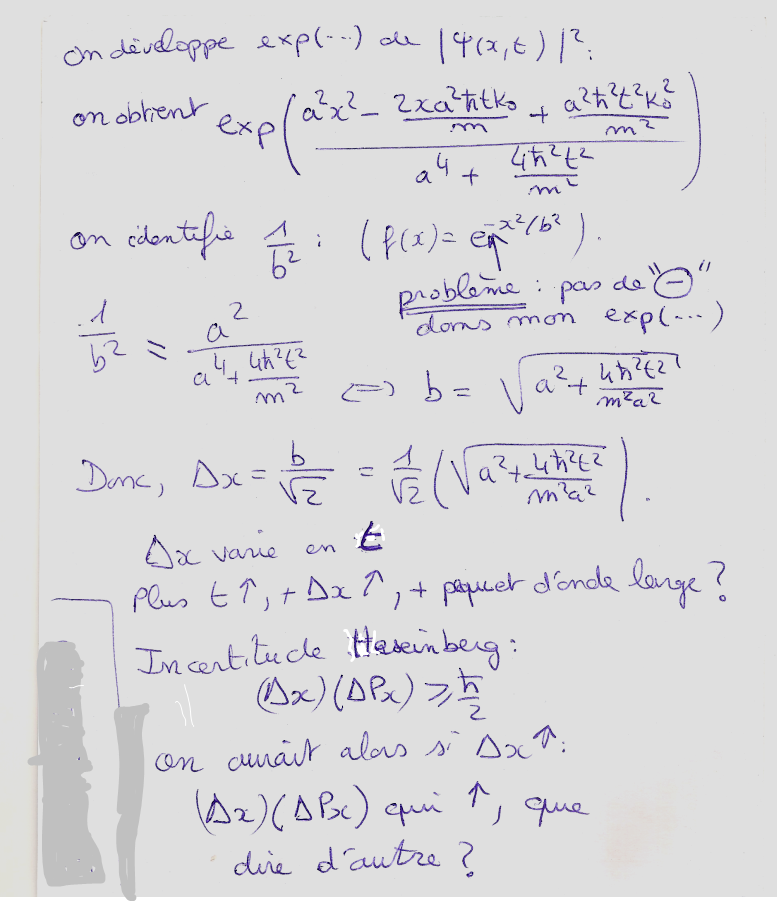 On développe exp(...) de |Ψ(x,t)|²:
on obtient exp((a²x² - 2xa²ħtk₀/m + a²ħ²t²k₀²/m²)/(a⁴ + 4ħ²t²/m²))
on identifie 1/b² : (f(x) = e^(-x²/b²)).
problème : pas de "⊖"
dans mon exp(...)
1/b² = a²/(a⁴ + 4ħ²t²/m²) <=> b = √(a² + 4ħ²t²/m²a²)
Donc, Δx = b/√2 = 1/√2 (√(a² + 4ħ²t²/m²a²)).
Δx varie en t
Plus t↑, + Δx↑, + paquet d'onde large ?
Incertitude Haseinberg :
(Δx)(ΔPx) ⩾ ħ/2
on aurait alors si Δx↑:
(Δx)(ΔPx) qui ↑, que
dire d'autre ?